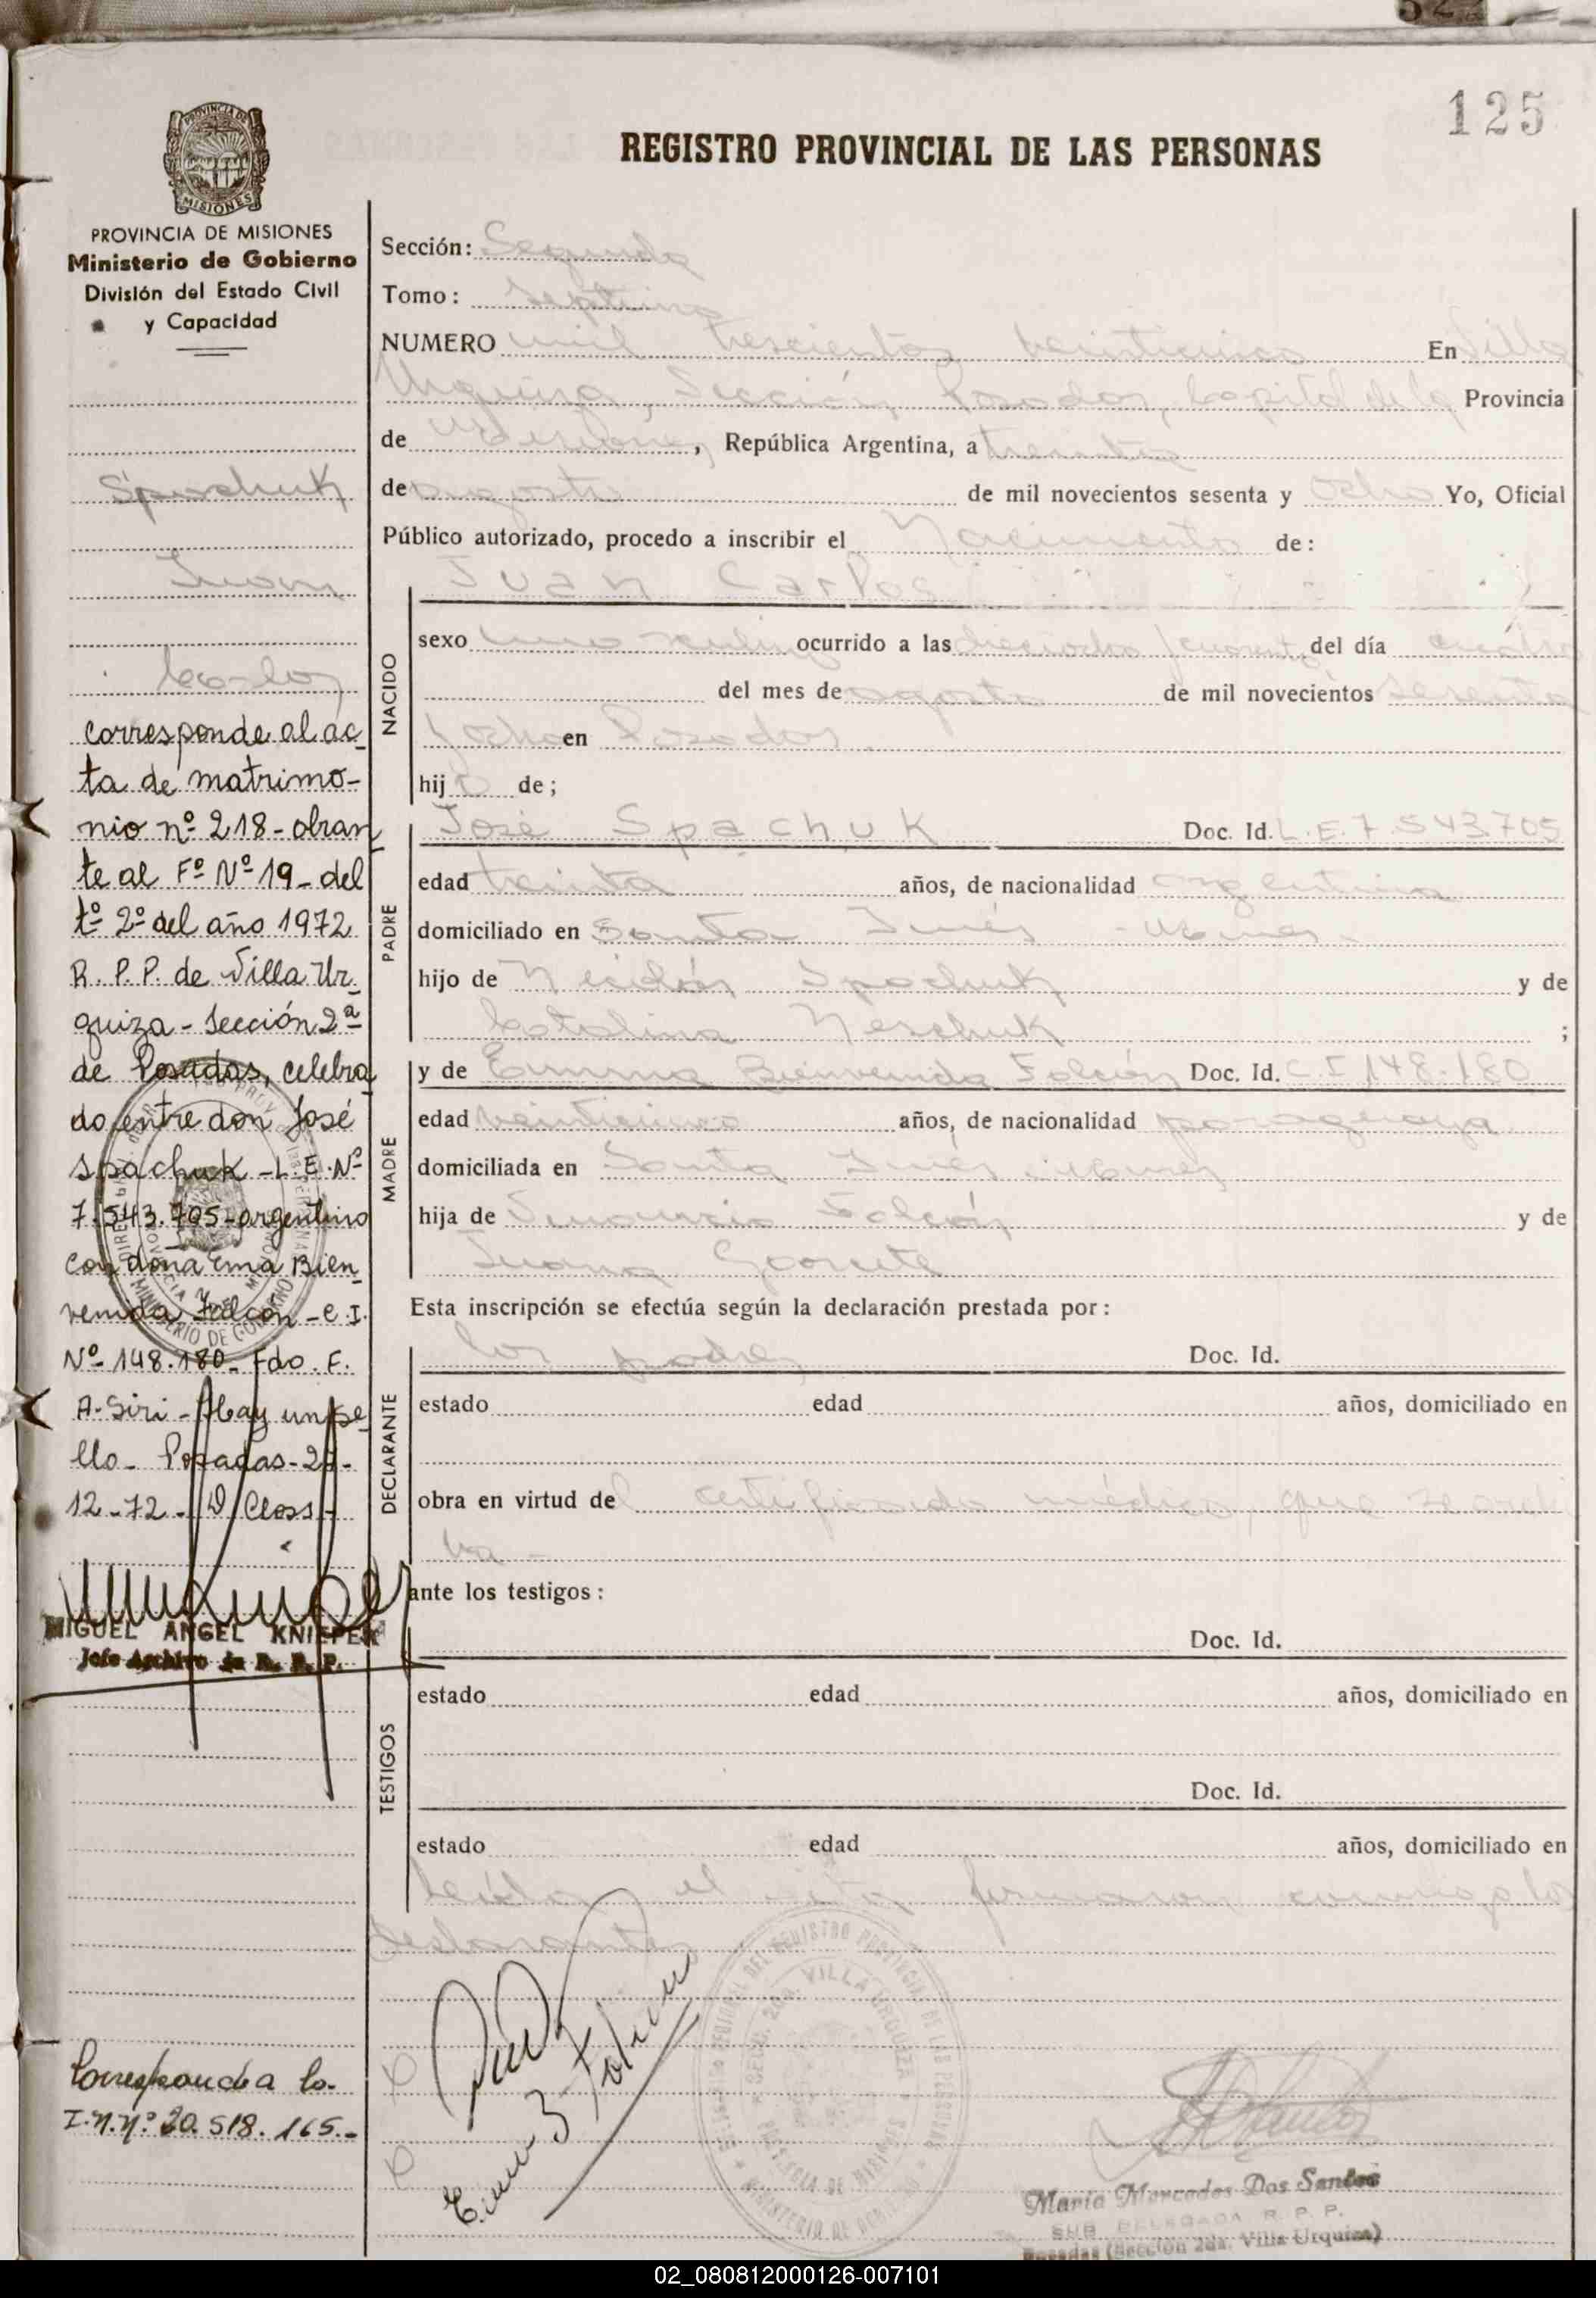 522
125
PROVINCIA DE MISIONES
REGISTRO PROVINCIAL DE LAS PERSONAS
PROVINCIA DE MISIONES
Ministerio de Gobierno
División del Estado Civil
y Capacidad
Spachuk
Juan
Carlos
corresponde al ac-
ta de matrimo-
nio nº 218 - obran
te al Fº Nº 19 - del
tº 2º del año 1972
R. P. P. de Villa Ur-
quiza - Sección 2ª
de Posadas, celebra
do entre don José
Spachuk - L.E. Nº
7.543.705 - argentino
con doña Ema Bien-
venida Falcón - C.I.
Nº 148.180 - Fdo. E.
A. Siri - Hay un se
llo - Posadas -
12 - 72 - D/Closs -
MIGUEL ANGEL KNIEPER
Jefe Archivo de R. P. P.
Corresponde a la
I.N.Nº 20.518.165.-
Sección: Segunda
Tomo: septimo
NUMERO mil trescientos veinticinco En Villa
Urquiza, Sección Posadas, Capital de la Provincia
de Misiones, República Argentina, a treinta
de agosto de mil novecientos sesenta y ocho Yo, Oficial
Público autorizado, procedo a inscribir el Nacimiento de:
NACIDO
Juan Carlos
sexo masculino ocurrido a las dieciocho y cuarenta del día cuatro
del mes de agosto de mil novecientos sesenta
y ocho en Posadas
hijo de;
PADRE
José Spachuk Doc. Id. L.E. 7.543.705
edad treinta años, de nacionalidad argentina
domiciliado en Santa Inés - Mnes.
hijo de Nicolás Spachuk y de
Catalina Neschuk ;
MADRE
y de Emma Bienvenida Falcón Doc. Id. C.I 148.180
edad veinticinco años, de nacionalidad paraguaya
domiciliada en Santa Inés Mnes
hija de Falcón y de
Juana
Esta inscripción se efectúa según la declaración prestada por:
DECLARANTE
los padres Doc. Id.
estado edad años, domiciliado en
obra en virtud del certificado médico, que se archi
va -
ante los testigos:
TESTIGOS
Doc. Id.
estado edad años, domiciliado en
Doc. Id.
estado edad años, domiciliado en
Leída el acta firmaron conmigo los
declarantes
VILLA URQUIZA
María Mercedes Dos Santos
SUB DELEGADA R. P. P.
Posadas (Sección 2da. Villa Urquiza)
02_080812000126-007101